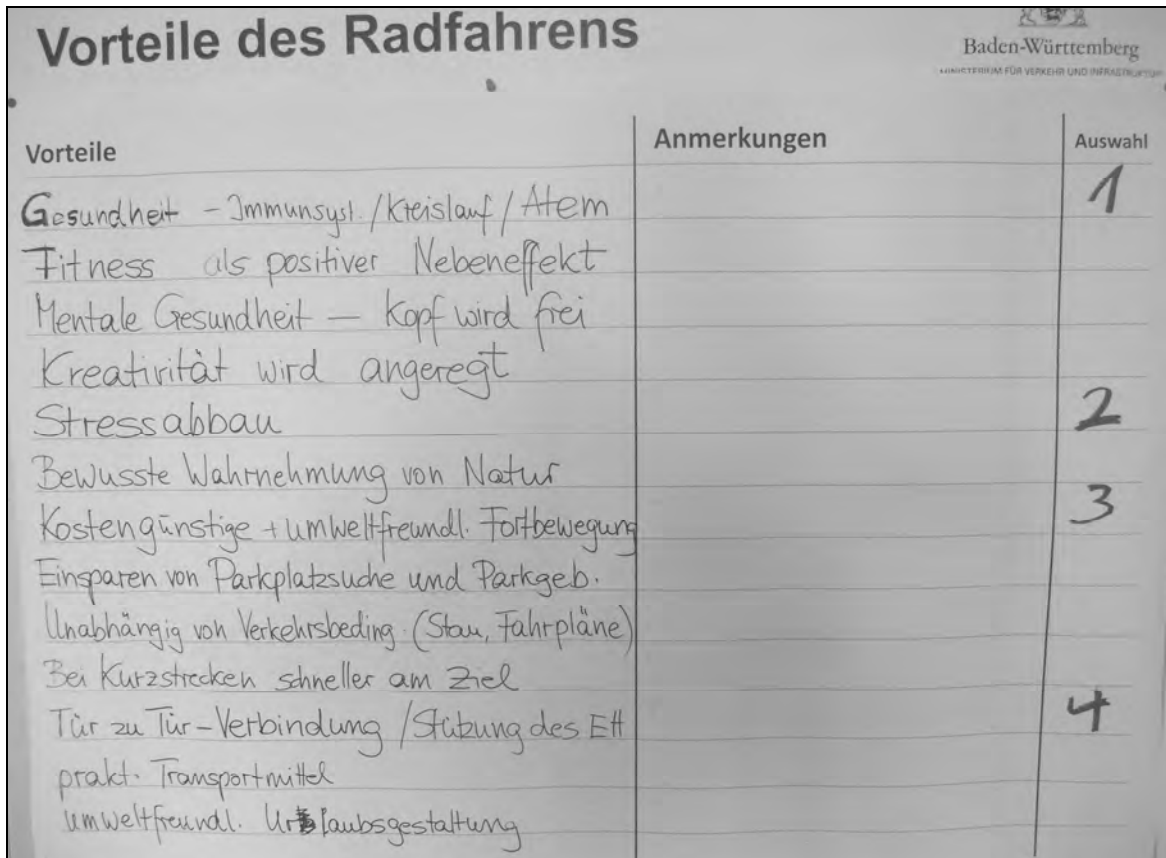 Vorteile des Radfahrens
Baden-Württemberg
MINISTERIUM FÜR VERKEHR UND INFRASTRUKTUR
Vorteile Anmerkungen Auswahl
Gesundheit - Immunsyst. / Kreislauf / Atem 1
Fitness als positiver Nebeneffekt
Mentale Gesundheit — Kopf wird frei
Kreativität wird angeregt
Stressabbau 2
Bewusste Wahrnehmung von Natur
Kostengünstige + umweltfreundl. Fortbewegung 3
Einsparen von Parkplatzsuche und Parkgeb.
Unabhängig von Verkehrsbeding. (Stau, Fahrpläne)
Bei Kurzstrecken schneller am Ziel
Tür zu Tür-Verbindung / des 4
prakt. Transportmittel
umweltfreundl. Urlaubsgestaltung